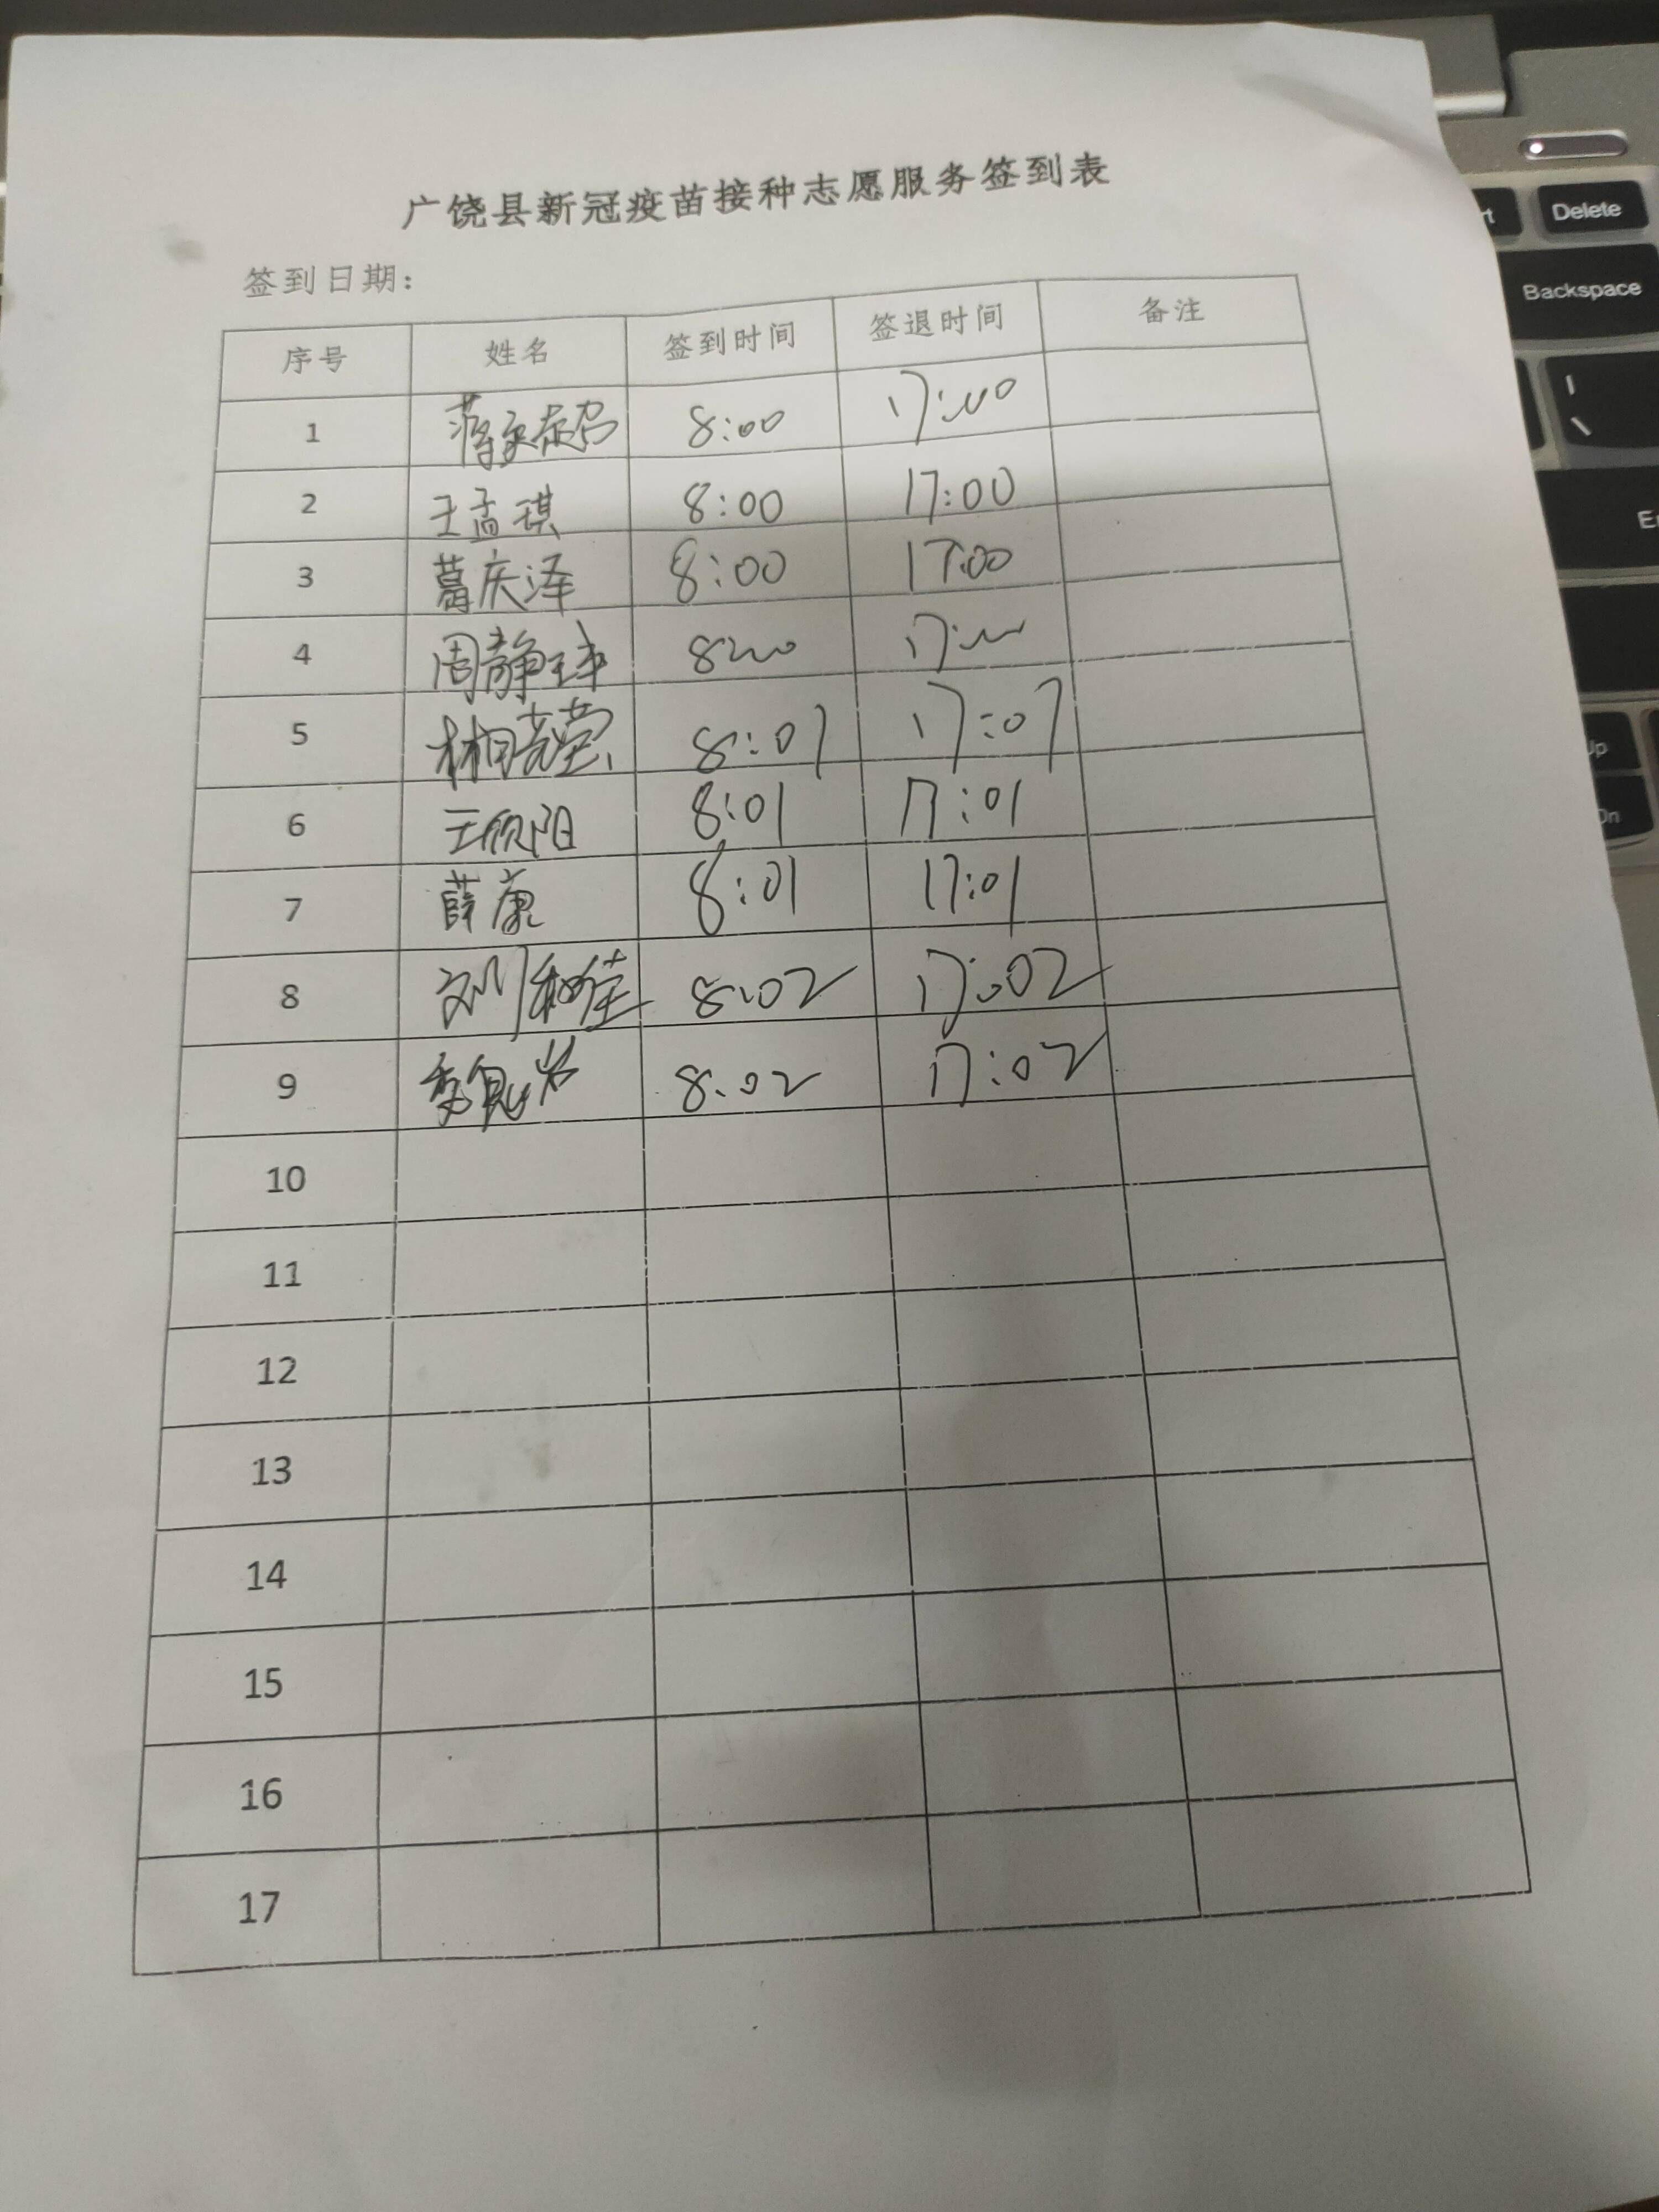 广饶县新冠疫苗接种志愿服务签到表
签到日期：
序号 姓名 签到时间 签退时间 备注
1 8:00 17:00
2 王孟琪 8:00 17:00
3 葛庆泽 8:00 17:00
4 周静 8:00 17:00
5 8:01 17:01
6 王欣阳 8:01 17:01
7 薛康 8:01 17:01
8 刘 佳 8:02 17:02
9 8:02 17:02
10
11
12
13
14
15
16
17
Delete
Backspace